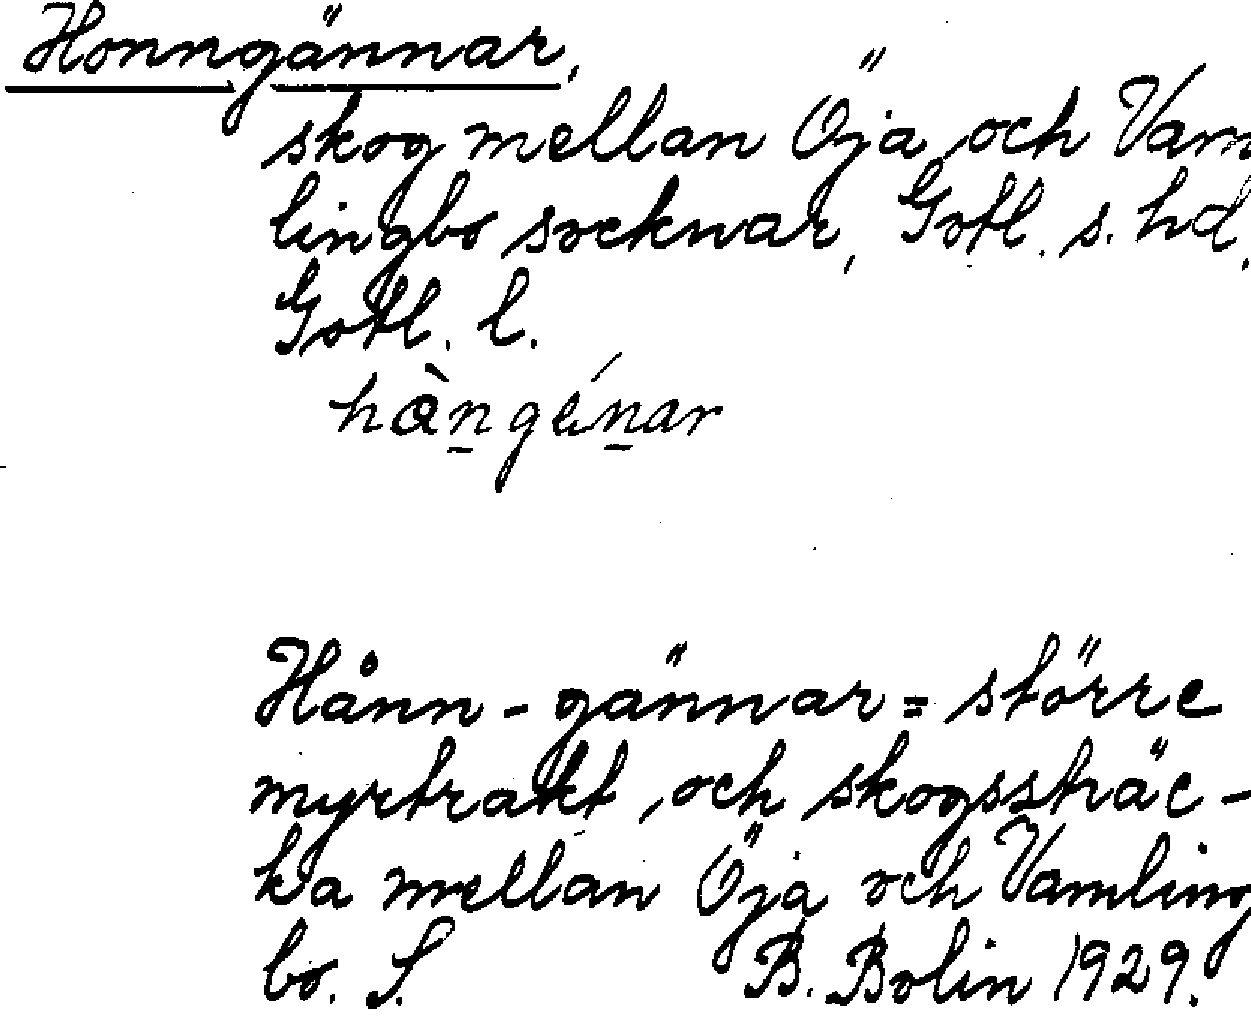 Honngännar,
skog mellan Öja och Vam
lingbo socknar, Gotl. s. hd,
Gotl. l.
hàn̲gén̲ar
Hånn - gännar = större
myrtrakt och skogssträc -
ka mellan Öja och Vamling
bo. S. B. Bolin 1929.